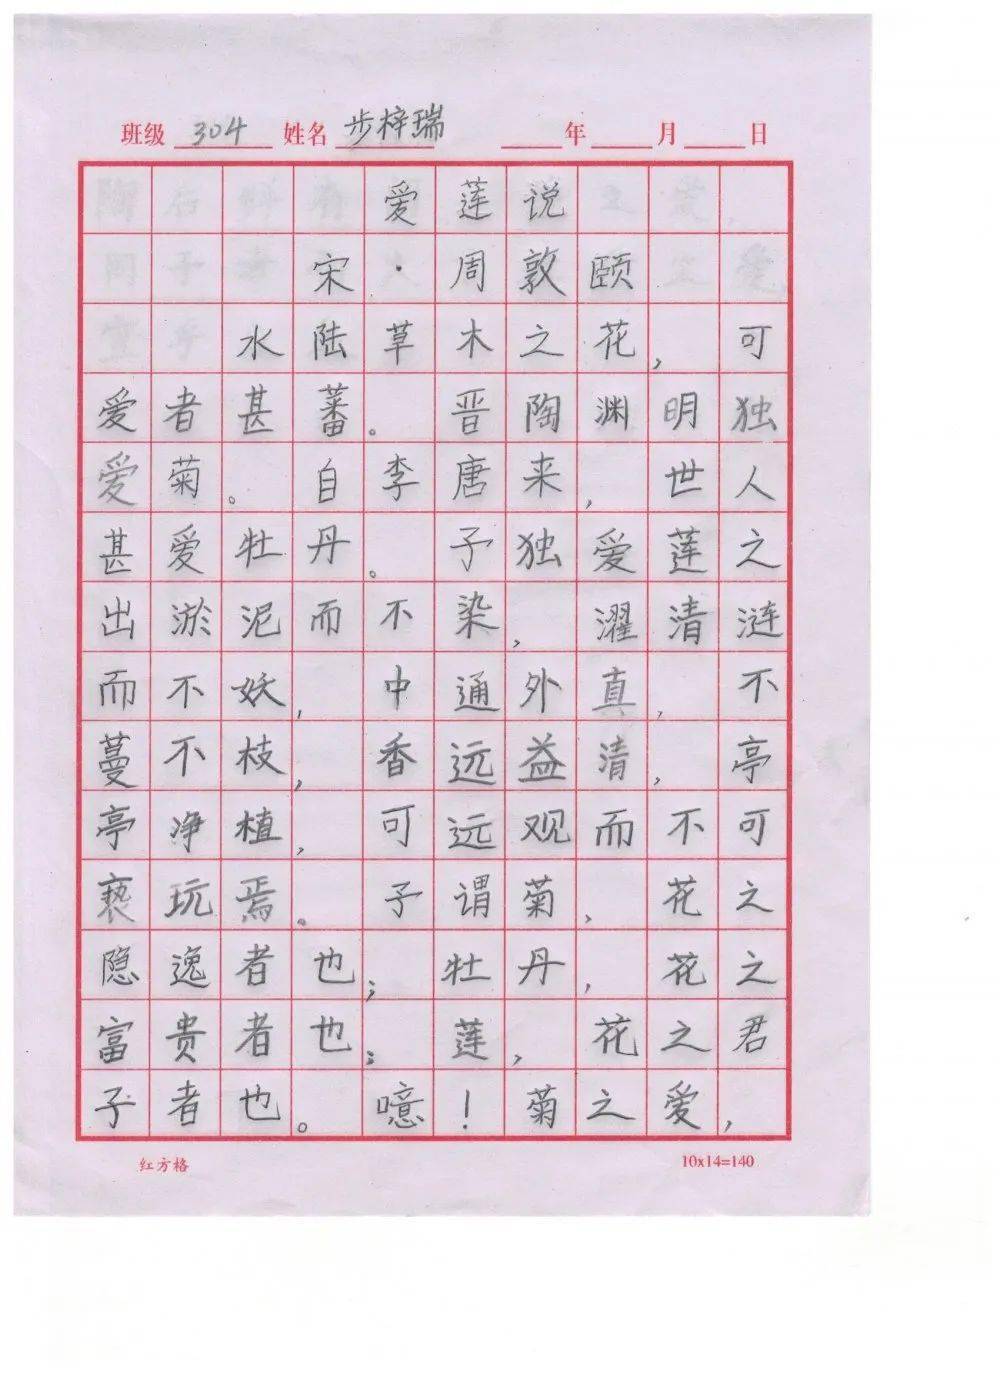 班级 304 姓名 步梓瑞 年 月 日
爱莲说
宋·周敦颐
水陆草木之花，可
爱者甚蕃。晋陶渊明独
爱菊。自李唐来，世人
甚爱牡丹。予独爱莲之
出淤泥而不染，濯清涟
而不妖，中通外真，不
蔓不枝，香远益清，亭
亭净植，可远观而不可
亵玩焉。予谓菊，花之
隐逸者也；牡丹，花之
富贵者也；莲，花之君
子者也。噫！菊之爱，
红方格 10x14=140